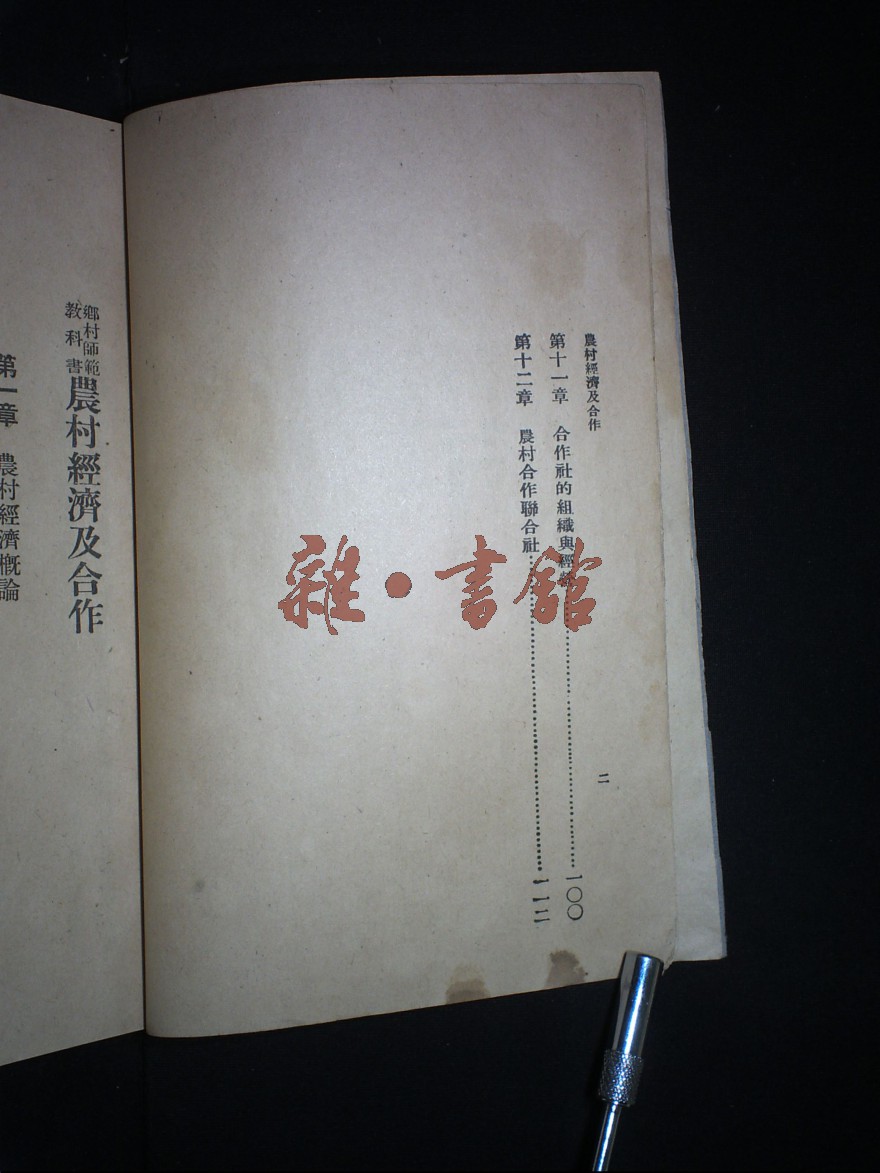 農村經濟及合作
二
第十一章 合作社的組織與經營……一〇〇
第十二章 農村合作聯合社……一一二
鄉村師範
教科書
農村經濟及合作
第一章 農村經濟概論
雜·書館